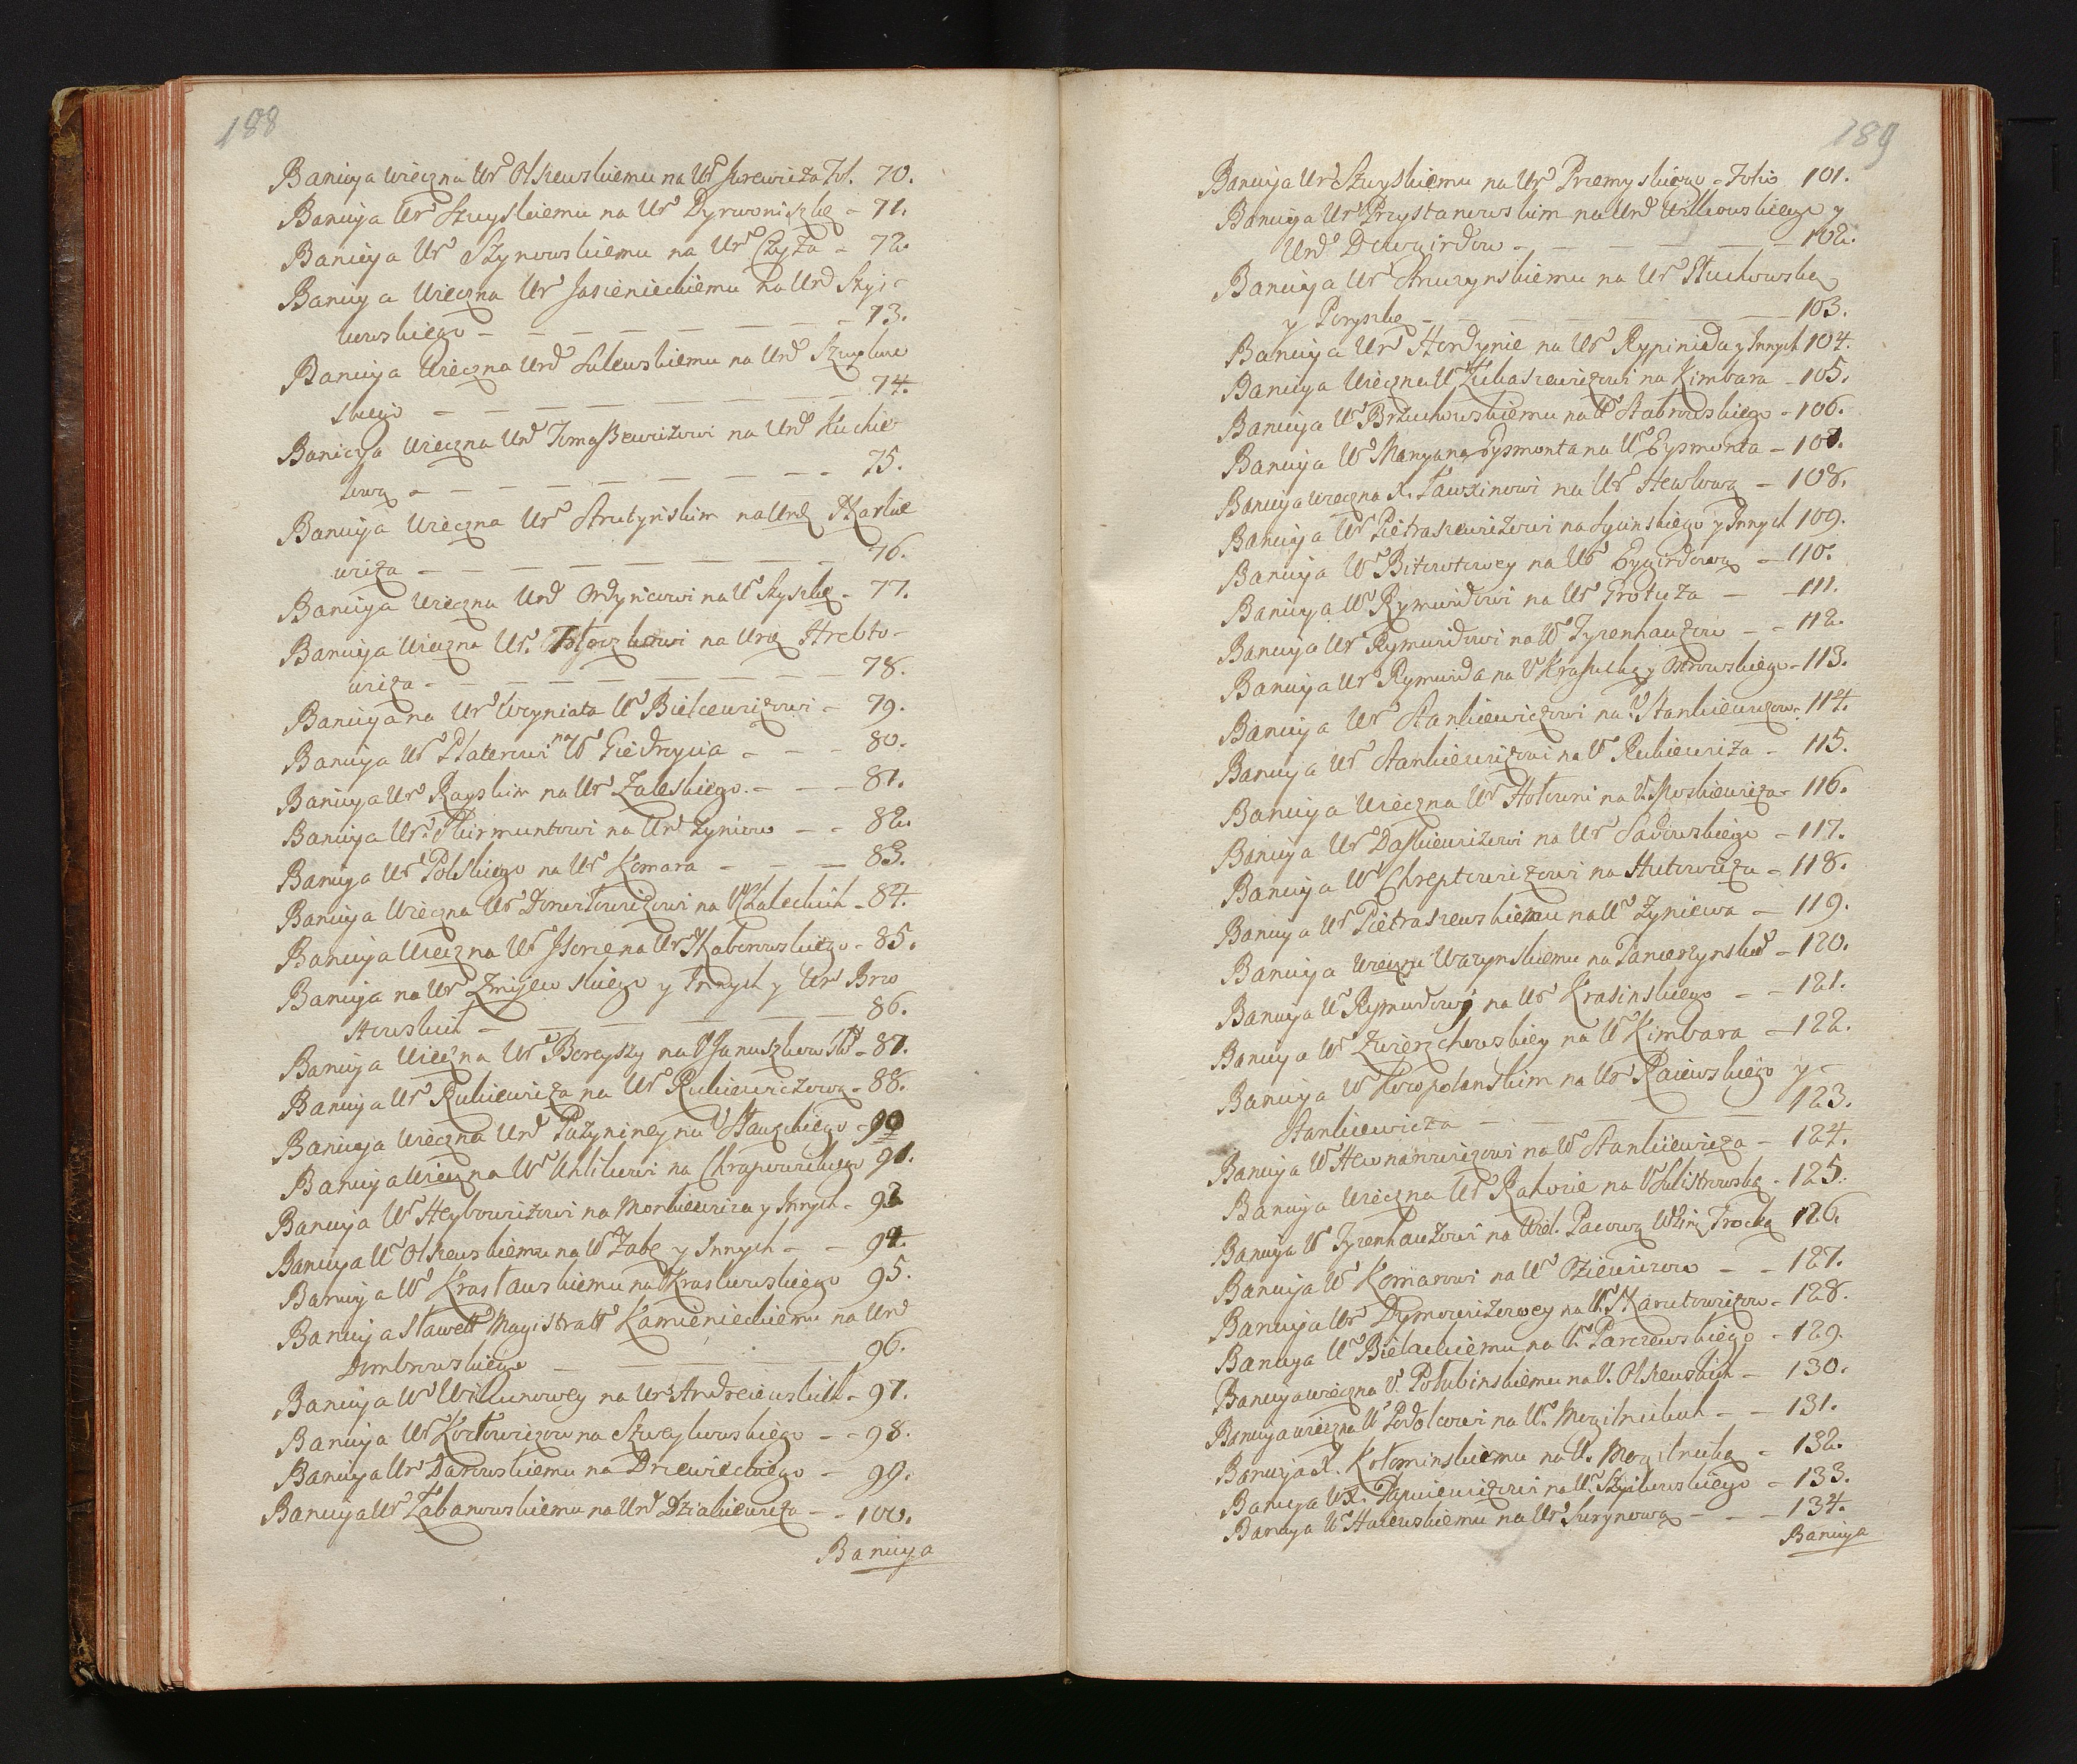 188
Banicya wieczna Ur Olszewskiemu na Ur Jurewicza Fol. 70.
Banicya Ur Szuyskiemu na Ur Dyrwoniszkę - 71.
Banicya Ur Szynowskiemu na Ur Czyża - 72.
Banicya Wieczna Ur Jasienieckiemu na Urd Szyi-
kowskiego - 73.
Banicya Wieczna Urd Sulewskiemu na Urd Szupkow
skiego - 74.
Banicya wieczna Urd Tomaszewiczowi na Urd Kuckie-
lową - 75.
Banicya Wieczna Ur Strutynskim na Urd Szarkie
wicza - 76.
Banicya Wieczna Urd Ordyncowi na Ur Szyszkę - 77.
Banicya Wieczna Ur. Tołoczkowi na Urd Strebto-
wicza - 78.
Banicya na Ur Woyniata Ur Bielcewiczowi - 79.
Banicya Ur Platerowi na Ur Giedroycia - 80.
Banicya Ur Rayskim na Ur Zaleskiego - 81.
Banicya Ur Skirmuntowi na Urd Zyniow - 82.
Banicya Ur Polskiego na Ur Komara - 83.
Banicya Wieczna Ur Downarowiczowi na Ur Zaleckich - 84.
Banicya Wieczna Ur Iscrze na Ur Szaborowskiego - 85.
Banicya na Ur Zmijewskiego y Innych y Ur Brzo
stowskich - 86.
Banicya Wieczna Ur Boreyszy na Ur Januszkowskd - 87.
Banicya Ur Rukiewicza na Ur Rukiewiczową - 88.
Banicya wieczna Urd Pużyniney na Ur Stauckiego - 90
Banicya Wieczna Ur Unlikowi na Chrapowickiego 91.
Banicya Ur Heybowiczowi na Monkiewicza y Innych - 92
Banicya Ur Olszewskiemu na Ur Zabę y Innych - 94.
Banicya Ur Krasławskiemu na Ur Kraskowskiego 95.
Banicya Sławett Magistratt Kamienieckiemu na Urd
Dombrowskiego - 96.
Banicya Ur Wikunowey na Ur Andrzeiewskich - 97.
Banicya Ur Kozłowiczow na Szweykowskiego - 98.
Banicya Ur Darowskiemu na Drzewieckiego - 99.
Banicya Ur Łabanowskiemu na Urd Dziakiewicza - 100.
Banicya
189
Banicya Ur Szuyskiemu na Ur Przemyskiego - Folio 101.
Banicya Ur Przystanowskim na Urd Witkowskiego y
Urd Dowgirdow - 102.
Banicya Ur Struzynskiemu na Ur Słuchowską
y Poryszkę - 103.
Banicya Ur Hordynie na Ur Rypinida y Innych 104.
Banicya Wieczna Ur Łukaszewiczowi na Kimbara - 105.
Banicya Ur Brzuchowskiemu na Ur Stabrowskiego - 106.
Banicya Ur Maryana Eysmonta na Ur Eysmonta - 107.
Banicya wieczna X. Ławxinowi na Ur Hewlową - 108.
Banicya Ur Pietraszewiczowi na Syunskiego y Innych 109.
Banicya Ur Bitowtowey na Ur Eygirdową - 110.
Banicya Ur Rymwidowi na Ur Grotuza - 111.
Banicya Ur Rymwidowi na Ur Tyzenhauzow - 112.
Banicya Ur Rymwida na Ur Krasuckę y Ostrowskiego - 113.
Banicya Ur Stankiewiczowi na Ur Stankiewiczow - 114.
Banicya Ur Stankiewiczowi na Ur Rukiewicza - 115.
Banicya Wieczna Ur Hołowni na Ur Moskiewicza - 116.
Banicya Ur Daszkiewiczowi na Ur Sadowskiego - 117.
Banicya Ur Chreptowiczowi na Hutowicza - 118.
Banicya Ur Pietraszewskiemu na Ur Zyniewa - 119.
Banicya Wieczna Wazynskiemu na Pancerzynskd - 120.
Banicya Ur Rymwidowi na Ur Krasinskiego - 121.
Banicya Ur Zwierzchowskiey na Ur Kimbara - 122.
Banicya Ur Koropolanskim na Ur Raiewskiego y -
Stankiewicza - 123.
Banicya Ur Hewnarowiczowi na Ur Stankiewicza - 124.
Banicya Wieczna Ur Rahozie na Ur Sulistrowską - 125.
Banicya Ur Tyzenhauzowi na Wiel. Pacową Wdzinę Trocką 126.
Banicya Ur Komarowi na Ur Oziewiczow - 127.
Banicya Ur Dymowiczowey na Ur Skarutowiczow - 128.
Banicya Ur Bielackiemu na Ur Parczewskiego - 129.
Banicya wieczna U. Połubinskiemu na U. Olszewskich - 130.
Banicya wieczna Ur Podolcowi na Ur Mogilnickich - 131.
Banicya X. Kołominskiemu na Ur. Mogilnicką - 132.
Banicya Ur. Papiewiczowi na Ur. Szpikowskiego - 133.
Banicya Ur Halewskiemu na Ur Surynową - 134.
Banicya